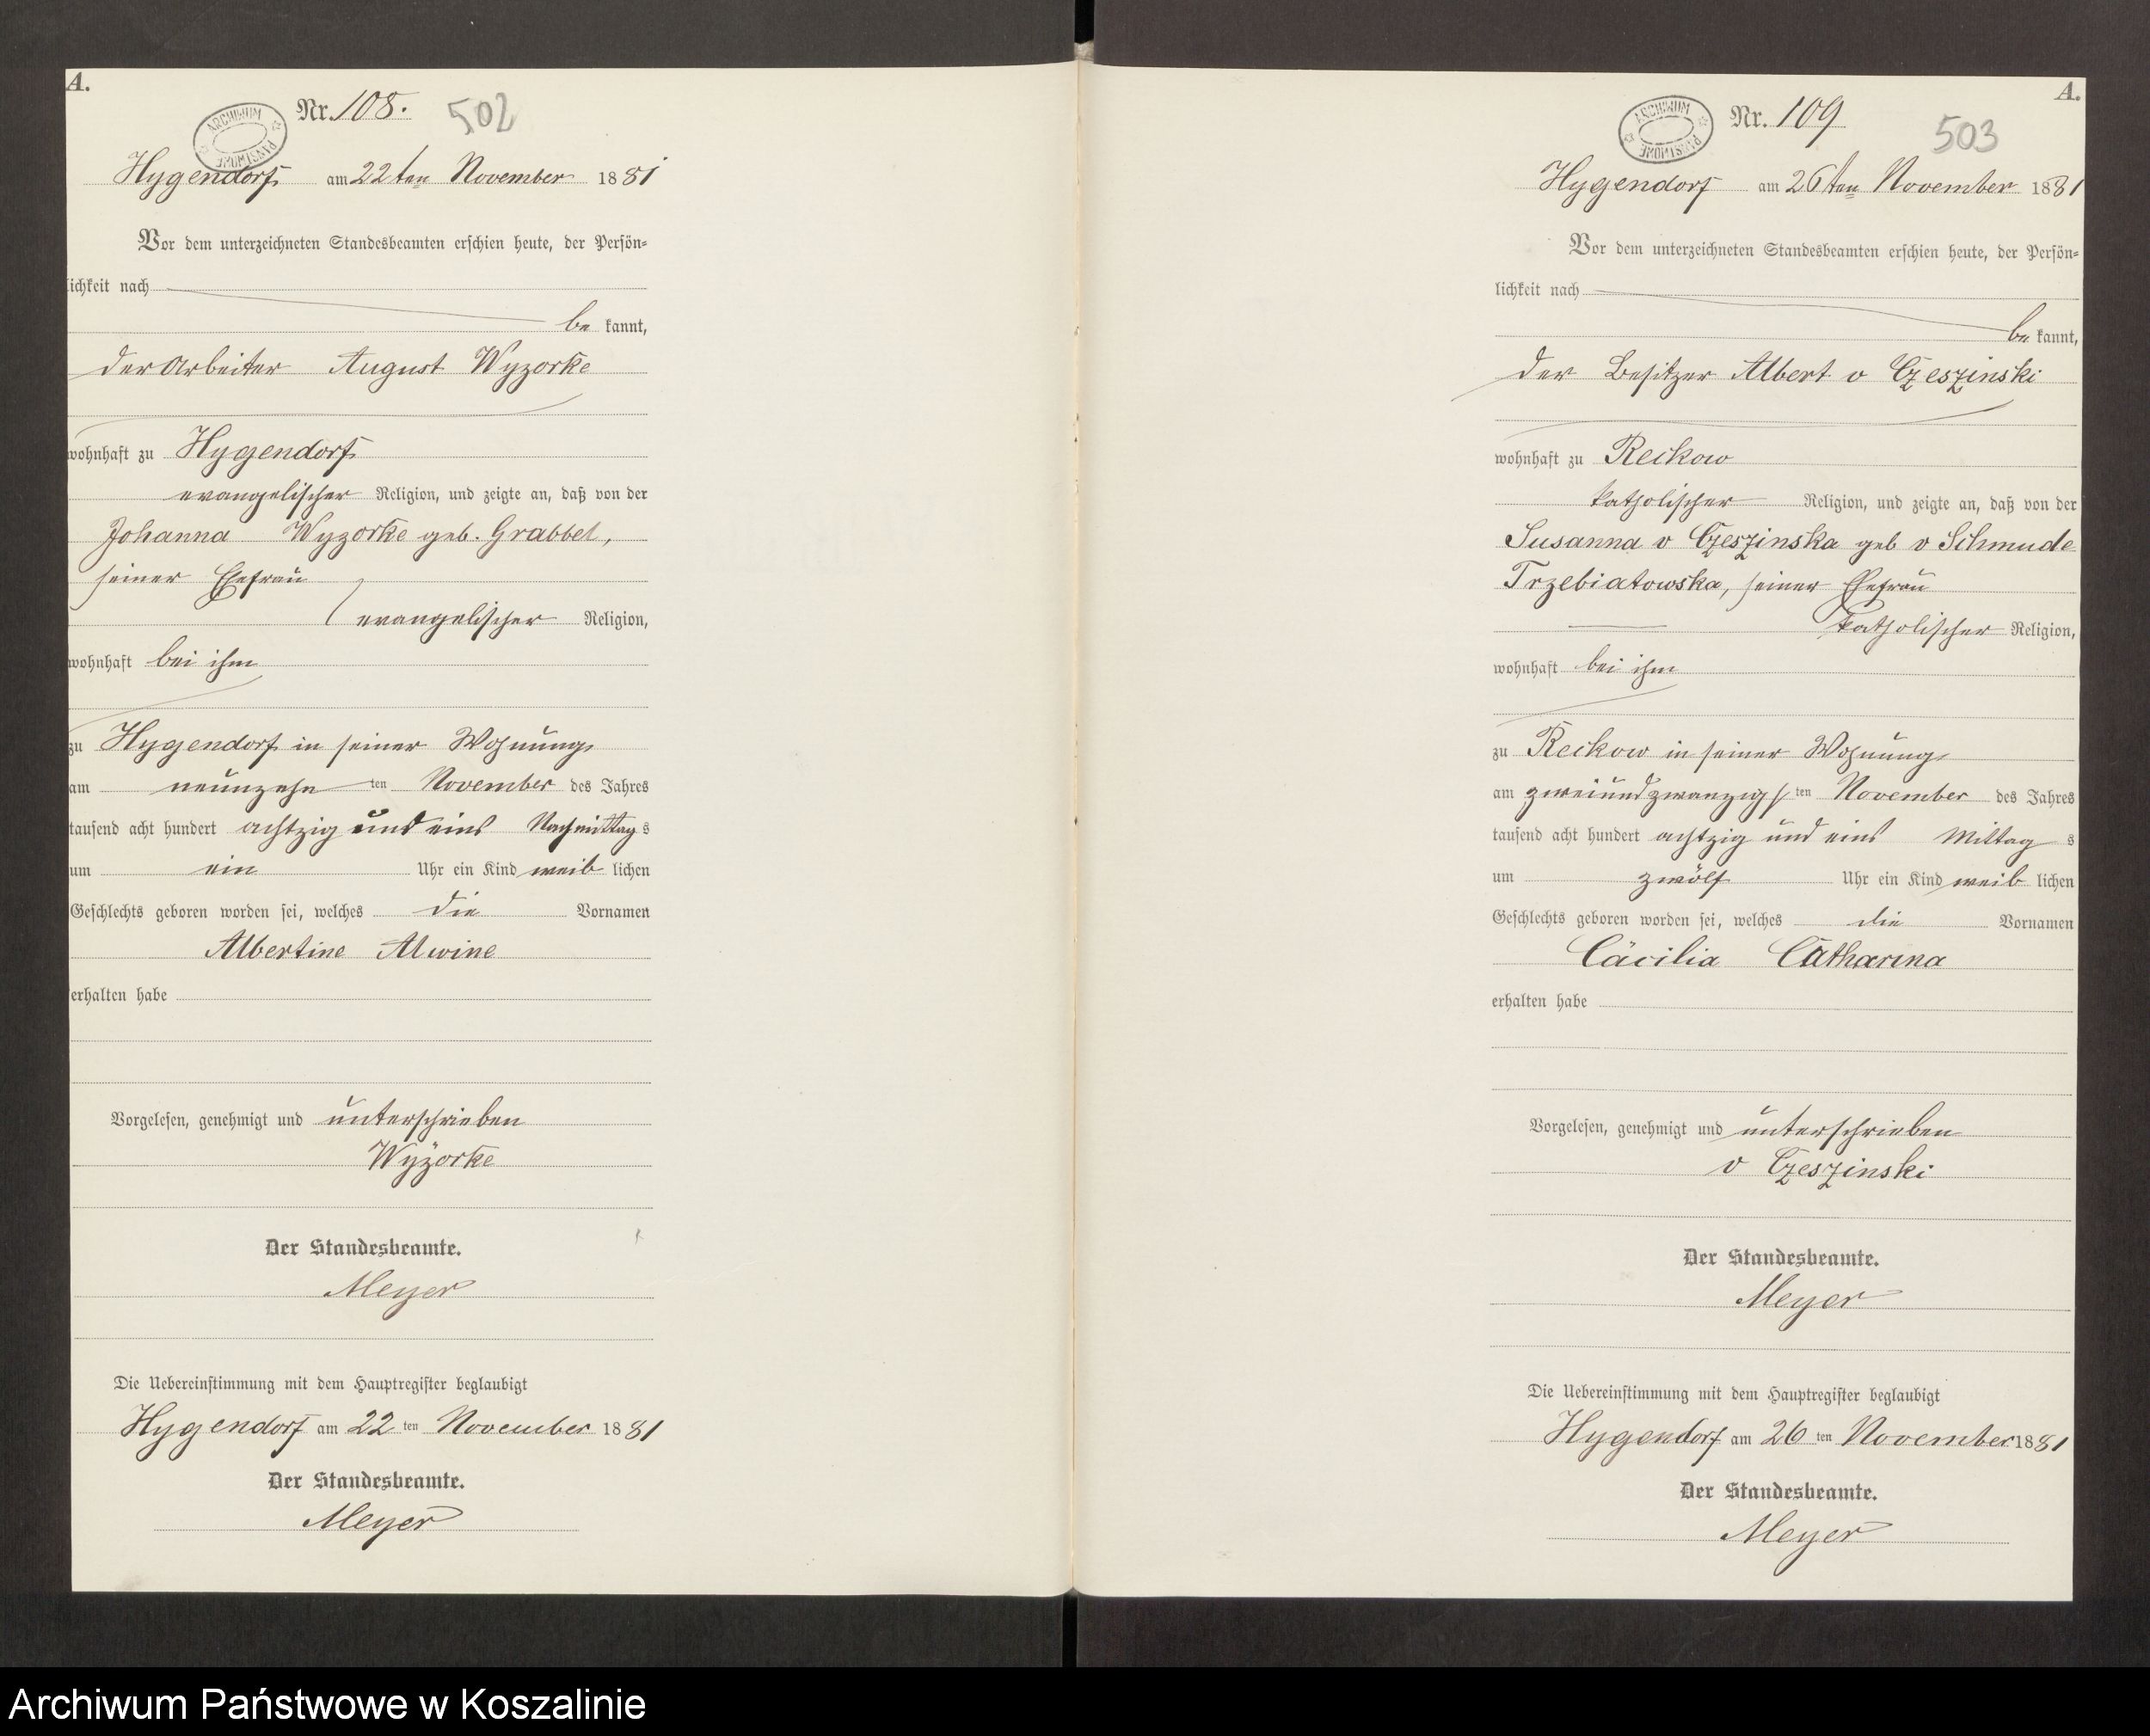 A.
Nr. 108. 502
ARCHIWUM PAŃSTWOWE
Hygendorf am 22ten November 1881
Vor dem unterzeichneten Standesbeamten erschien heute, der Persön-
lichkeit nach
be kannt,
der Arbeiter August Wyzorke
wohnhaft zu Hygendorf
evangelischer Religion, und zeigte an, daß von der
Johanna Wyzorke geb. Grabbel,
seiner Ehefrau
evangelischer Religion,
wohnhaft bei ihm
zu Hygendorf in seiner Wohnung
am neunzehn ten November des Jahres
tausend acht hundert achtzig und eins Nachmittag s
um ein Uhr ein Kind weib lichen
Geschlechts geboren worden sei, welches die Vornamen
Albertine Alwine
erhalten habe
Vorgelesen, genehmigt und unterschrieben
Wyzorke
Der Standesbeamte.
Meyer
Die Uebereinstimmung mit dem Hauptregister beglaubigt
Hygendorf am 22 ten November 1881
Der Standesbeamte.
Meyer
A.
Nr. 109 503
ARCHIWUM PAŃSTWOWE
Hygendorf am 26ten November 1881
Vor dem unterzeichneten Standesbeamten erschien heute, der Persön-
lichkeit nach
be kannt,
der Besitzer Albert v Czeszinski
wohnhaft zu Reckow
katholischer Religion, und zeigte an, daß von der
Susanna v Czeszinska geb v Schmude
Trzebiatowska, seiner Ehefrau
katholischer Religion,
wohnhaft bei ihm
zu Reckow in seiner Wohnung
am zweiundzwanzigs ten November des Jahres
tausend acht hundert achtzig und eins Mittag s
um zwölf Uhr ein Kind weib lichen
Geschlechts geboren worden sei, welches die Vornamen
Cäcilia Catharina
erhalten habe
Vorgelesen, genehmigt und unterschrieben
v Czeszinski
Der Standesbeamte.
Meyer
Die Uebereinstimmung mit dem Hauptregister beglaubigt
Hygendorf am 26 ten November 1881
Der Standesbeamte.
Meyer
Archiwum Państwowe w Koszalinie